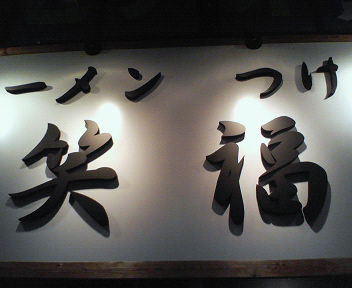 ーメン つけ
笑福